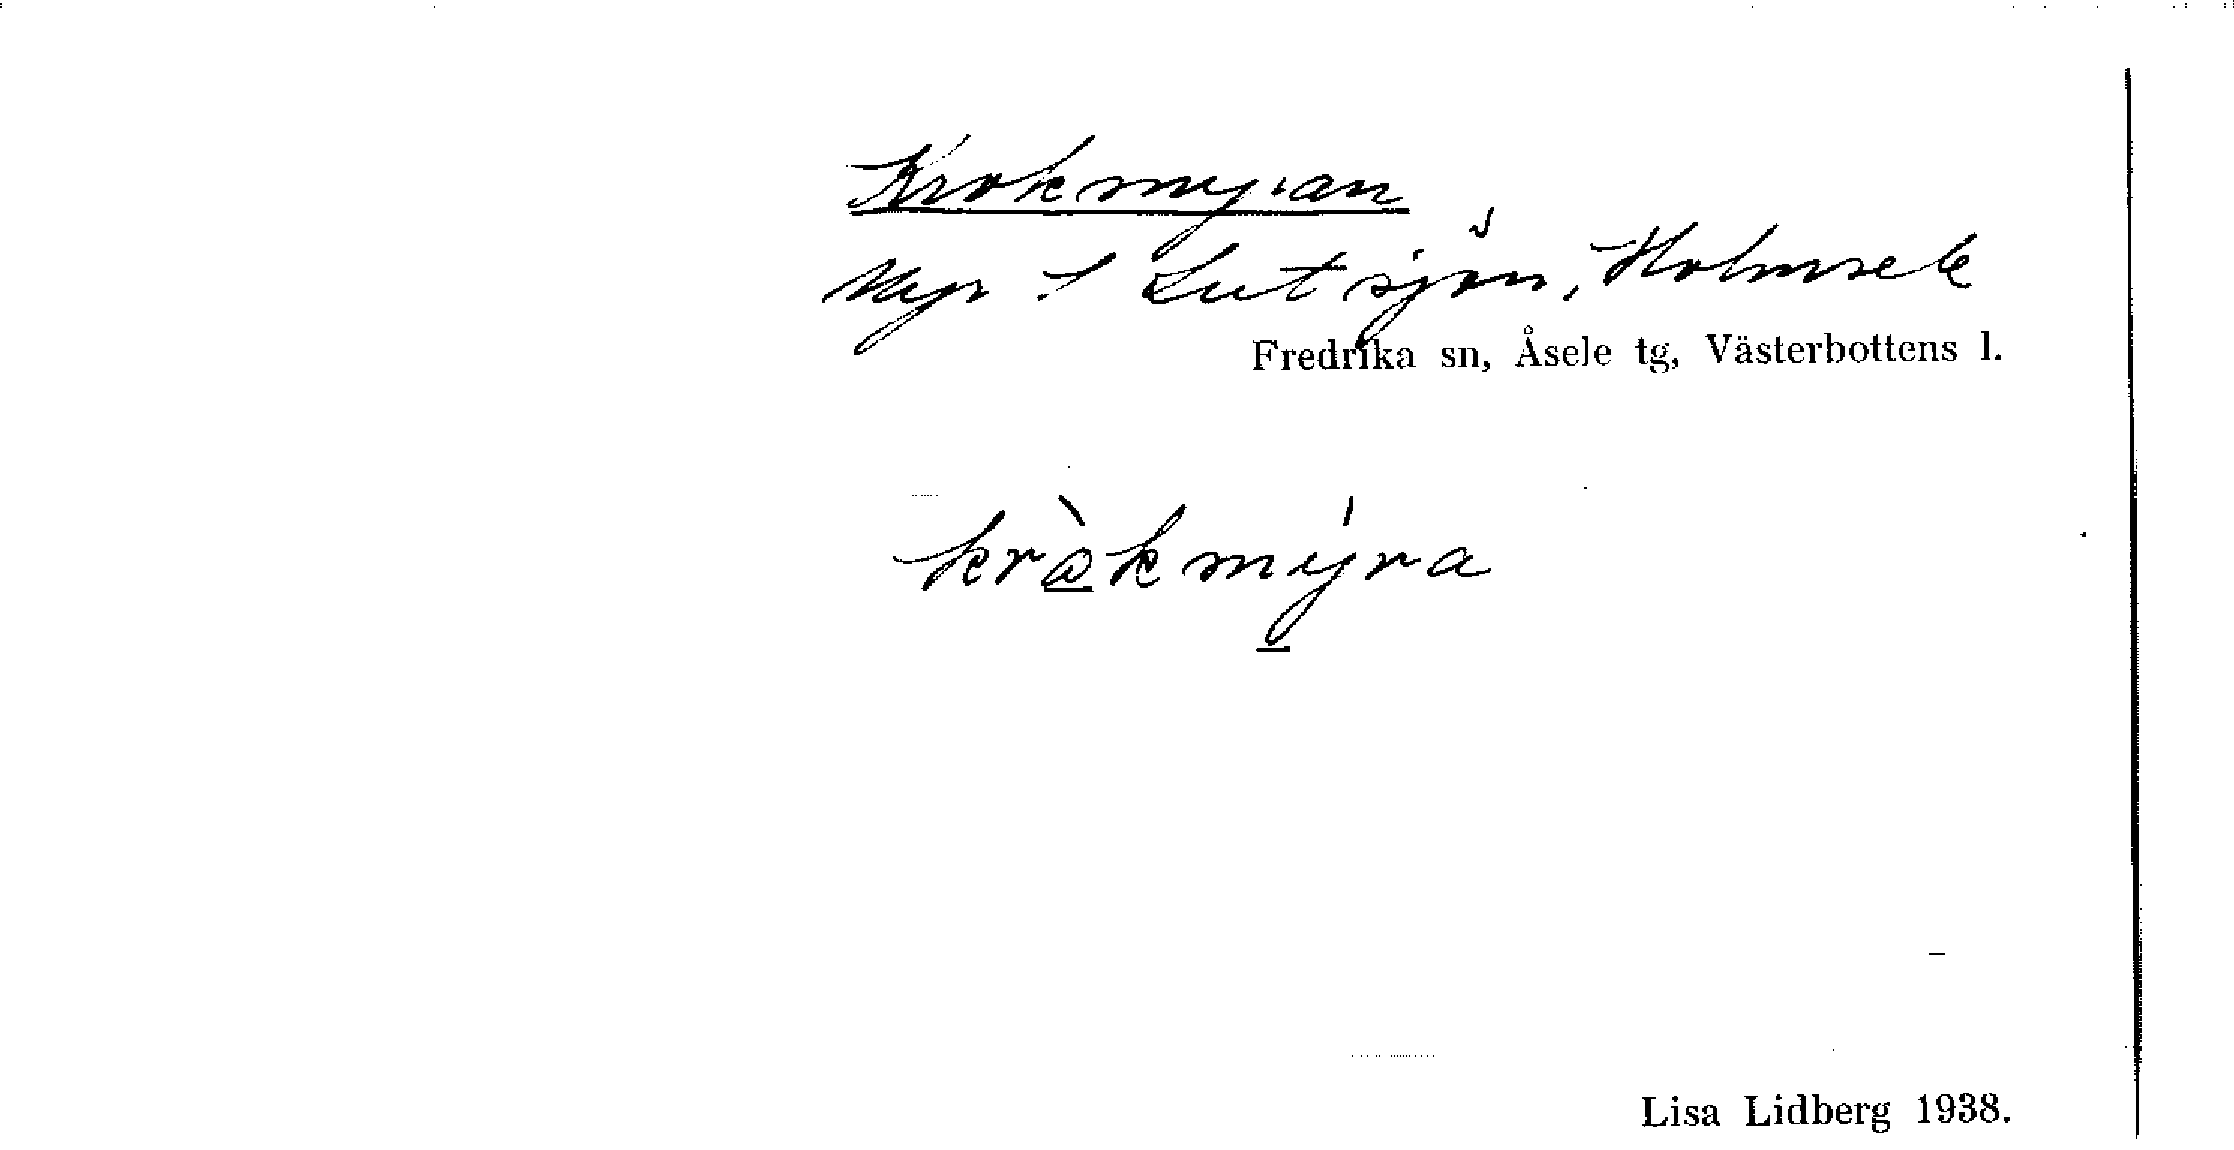 Krokmyran
Myr S Lutsjön, Holmsele
Fredrika sn, Åsele tg, Västerbottens l.
kròkmýra
Lisa Lidberg 1938.